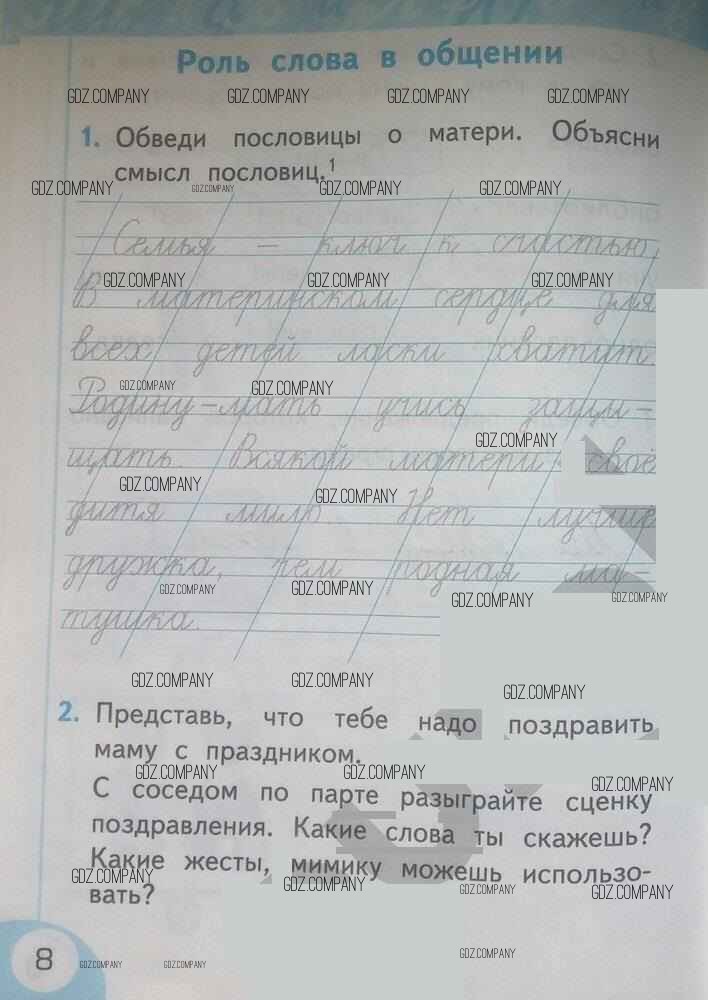 Роль слова в общении
GDZ.COMPANY GDZ.COMPANY GDZ.COMPANY GDZ.COMPANY
1. Обведи пословицы о матери. Объясни
смысл пословиц.¹
GDZ.COMPANY GDZ.COMPANY GDZ.COMPANY GDZ.COMPANY
Семья — ключ к счастью.
GDZ.COMPANY GDZ.COMPANY GDZ.COMPANY
В материнском сердце для
всех детей ласки хватит.
GDZ.COMPANY GDZ.COMPANY
Родину-мать учись защи-
GDZ.COMPANY
щать. Всякой матери своё
GDZ.COMPANY GDZ.COMPANY
дитя мило. Нет лучше
дружка, чем родная ма-
GDZ.COMPANY GDZ.COMPANY GDZ.COMPANY GDZ.COMPANY
тушка.
GDZ.COMPANY GDZ.COMPANY GDZ.COMPANY
2. Представь, что тебе надо поздравить
маму с праздником.
GDZ.COMPANY GDZ.COMPANY GDZ.COMPANY
С соседом по парте разыграйте сценку
поздравления. Какие слова ты скажешь?
Какие жесты, мимику можешь использо-
GDZ.COMPANY GDZ.COMPANY GDZ.COMPANY GDZ.COMPANY
вать?
8 GDZ.COMPANY GDZ.COMPANY GDZ.COMPANY